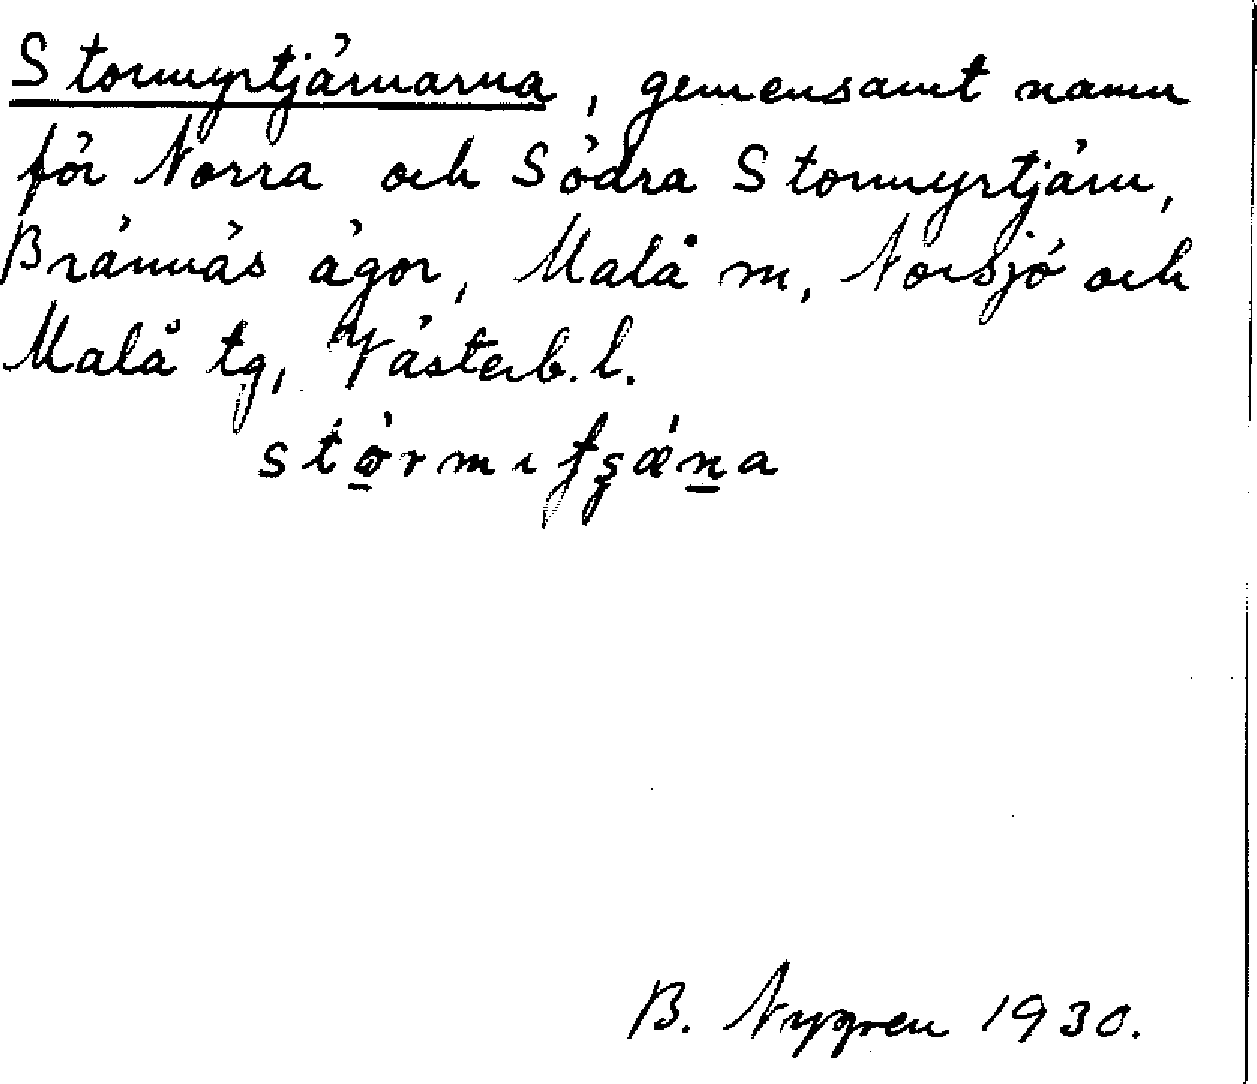 Stormyrtjärnarna, gemensamt namn
för Norra och Södra Stormyrtjärn,
Brännäs ägor, Malå m, Norsjö och
Malå tg, Västerb. l.
B. Nygren 1930.